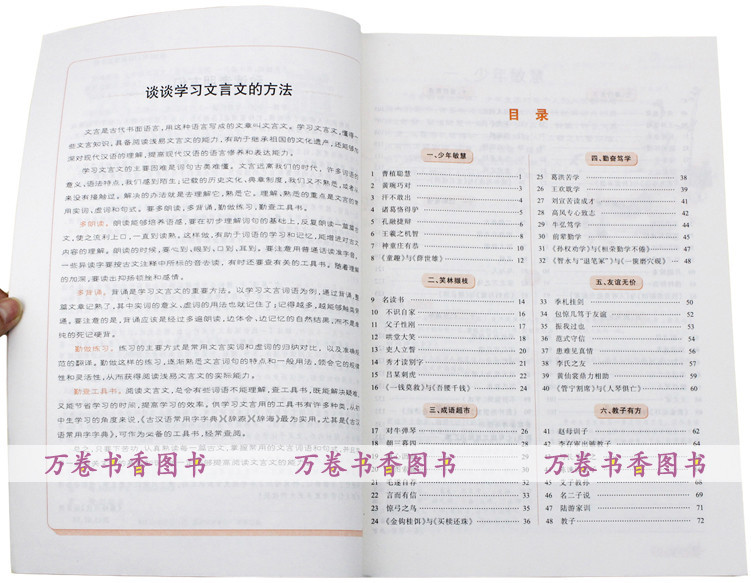 谈谈学习文言文的方法
文言是古代书面语言,用这种语言写成的文章叫文言文。学习文言文,懂得一
些文言知识,具备阅读浅易文言文的能力,有助于继承祖国的文化遗产,还能够加
深对现代汉语的理解,提高现代汉语的语言修养和表达能力。
学习文言文的主要困难是词句古奥难懂。文言远离我们的时代,许多词语的
意义,语法特点,我们感到陌生;记载的历史文化、典章制度,我们又不熟悉,或者从
来没有接触过。解决的办法就是去理解它,熟悉它。理解、熟悉的重点是文言的常
用实词、虚词和句式。要多朗读,多背诵,勤做练习,勤查工具书。
多朗读。朗读能够培养语感,要在初步理解词句的基础上,反复朗读一篇篇古
文,使之流利上口,一直到读熟。这样做,有助于词语的学习和记忆,能增进对古文
内容的理解。朗读的时候,要心到,眼到,口到,耳到。要注意用普通话读准字音,
一些异读字要按古文注释中所标的音去读,有时还要查有美的工具书。随着理解
的加深,要读出抑扬顿挫和感情。
多背诵。背诵是学习文言文的重要方法。以学习文言词语为例,通过背诵,整
篇文章记熟了,其中实词的意义、虚词的用法也就记住了;记得越多,越能够触类旁
通。要注意的是,背诵应该是经过多遍朗读,边体会,边记忆的自然结果,而不是单
纯的死记硬背。
勤做练习。练习的主要方式是常用文言实词和虚词的归纳对比,以及准确规
范的翻译。勤做这样的练习,逐渐熟悉文言词句的特点和一般用法,领会它的规律
性和灵活性,从而获得阅读浅易文言文的实际能力。
勤查工具书。阅读文言文,总会有些词语不能理解,查工具书,既能解决疑难,
又能节省学习的时间,提高学习的效率。供学习文言用的工具书有许多种类,从初
中学生学习的角度来说,《古汉语常用字字典》《辞源》《辞海》最为实用,尤其是《古汉
语常用字字典》,可作为必备的工具书,经常查阅。
目 录
一、少年敏慧
1 曹植聪慧 1
2 黄琬巧对 2
3 汗不敢出 4
4 诸葛恪得驴 5
5 孔融捷辩 6
6 王羲之机智 7
7 神童庄有恭 9
8 《童趣》与《薛世雄》 10
二、笑林撷枝
9 名读书 14
10 不识自家 16
11 父子性刚 17
12 哄堂大笑 18
13 吏人立誓 20
14 秀才读别字 21
15 吕某刺虎 22
16 《一钱莫救》与《吾腰千钱》 24
三、成语超市
17 对牛弹琴 26
18 朝三暮四 28
21 毛遂自荐
22 言而有信 33
23 惊弓之鸟 34
24 《金钩桂饵》与《买椟还珠》 36
四、勤奋笃学
25 葛洪苦学 38
26 王欢耽学 39
27 刘宫苦读成才 41
28 高凤专心致志 42
29 牛弘笃学 44
30 前辈勤学 45
31 《孙权劝学》与《桓荣勤学不倦》 47
32 《智永与“退笔冢”》与《一箧磨穴砚》 48
五、友谊无价
33 季札挂剑 50
34 包惊几笃于友谊 52
35 振我过也 53
36 范式守信 54
37 患难见真情 56
38 李氏之友 57
39 黄仙裳鼎力相助 59
40 《管宁割席》与《人琴俱亡》 60
六、教子有方
41 赵母训子 62
42 李存家出镞教子 64
45 父子教孙 68
46 名二子说 69
47 陆游家训 71
48 教子 72
万卷书香图书
万卷书香图书
万卷书香图书